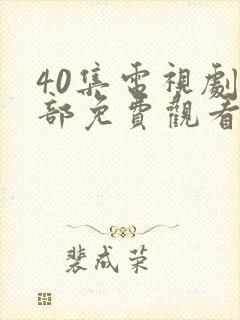 40集电視劇
部免費觀看
裴成荣